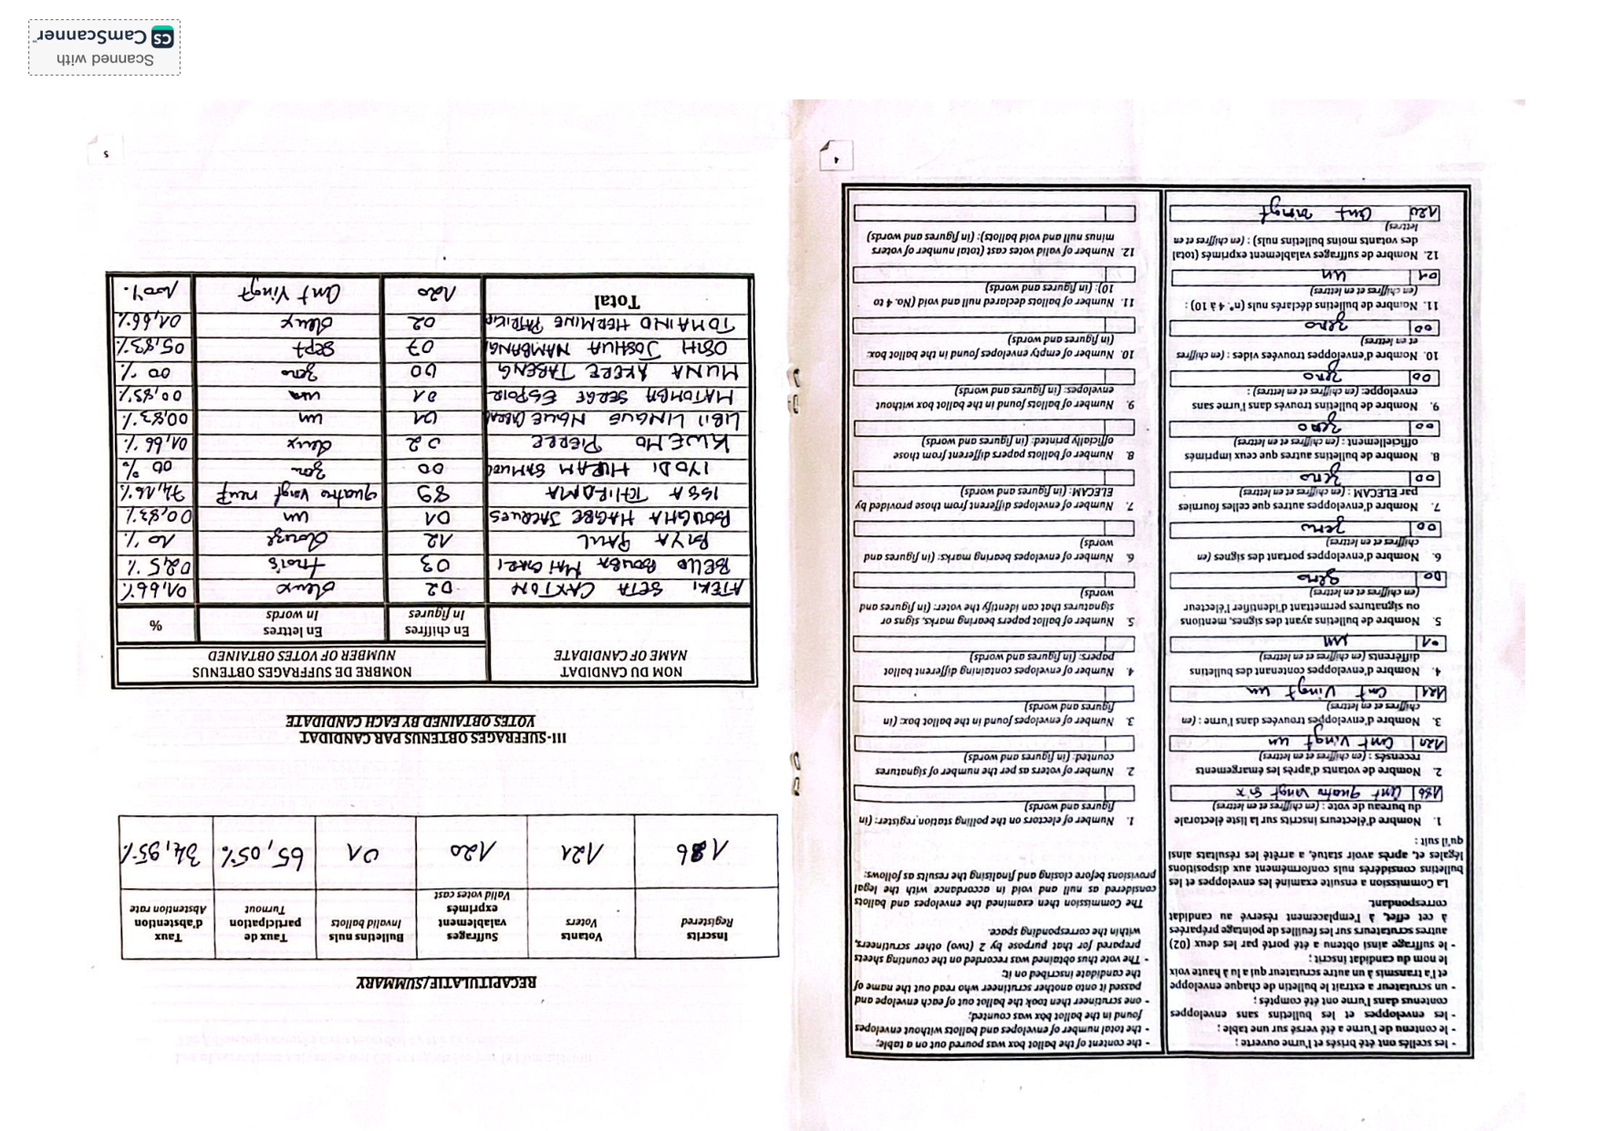 - les scellés ont été brisés et l'urne ouverte ;
- le contenu de l'urne a été versé sur une table ;
- les enveloppes et les bulletins sans enveloppes
contenus dans l'urne ont été comptés ;
- un scrutateur a extrait le bulletin de chaque enveloppe
et l'a transmis à un autre scrutateur qui a lu à haute voix
le nom du candidat inscrit ;
- le suffrage ainsi obtenu a été porté par les deux (02)
autres scrutateurs sur les feuilles de pointage préparées
à cet effet, à l'emplacement réservé au candidat
correspondant.
La Commission a ensuite examiné les enveloppes et les
bulletins considérés nuls conformément aux dispositions
légales et, après avoir statué, a arrêté les résultats ainsi
qu'il suit :
1. Nombre d'électeurs inscrits sur la liste électorale
du bureau de vote : (en chiffres et en lettres)
186 cent quatre vingt six
2. Nombre de votants d'après les émargements
recensés : (en chiffres et en lettres)
121 Cent Vingt un
3. Nombre d'enveloppes trouvées dans l'urne : (en
chiffres et en lettres)
121 Cent Vingt un
4. Nombre d'enveloppes contenant des bulletins
différents (en chiffres et en lettres)
01 un
5. Nombre de bulletins ayant des signes, mentions
ou signatures permettant d'identifier l'électeur
(en chiffres et en lettres)
00 zero
6. Nombre d'enveloppes portant des signes (en
chiffres et en lettres)
00 zero
7. Nombre d'enveloppes autres que celles fournies
par ELECAM : (en chiffres et en lettres)
00 zero
8. Nombre de bulletins autres que ceux imprimés
officiellement : (en chiffres et en lettres)
00 zero
9. Nombre de bulletins trouvés dans l'urne sans
enveloppe: (en chiffres et en lettres) :
00 zero
10. Nombre d'enveloppes trouvées vides : (en chiffres
et en lettres)
00 zero
11. Nombre de bulletins déclarés nuls (n°. 4 à 10) :
(en chiffres et en lettres)
01 un
12. Nombre de suffrages valablement exprimés (total
des votants moins bulletins nuls) : (en chiffres et en
lettres)
120 Cent vingt
- the content of the ballot box was poured out on a table;
- the total number of envelopes and ballots without envelopes
found in the ballot box was counted;
- one scrutineer then took the ballot out of each envelope and
passed it onto another scrutineer who read out the name of
the candidate inscribed on it;
- The vote thus obtained was recorded on the counting sheets
prepared for that purpose by 2 (two) other scrutineers,
within the corresponding space.
The Commission then examined the envelopes and ballots
considered as null and void in accordance with the legal
provisions before closing and finalising the results as follows:
1. Number of electors on the polling station register: (in
figures and words)
2. Number of voters as per the number of signatures
counted: (in figures and words)
3. Number of envelopes found in the ballot box: (in
figures and words)
4. Number of envelopes containing different ballot
papers: (in figures and words)
5. Number of ballot papers bearing marks, signs or
signatures that can identify the voter: (in figures and
words)
6. Number of envelopes bearing marks: (in figures and
words)
7. Number of envelopes different from those provided by
ELECAM: (in figures and words)
8. Number of ballots papers different from those
officially printed: (in figures and words)
9. Number of ballots found in the ballot box without
envelopes: (in figures and words)
10. Number of empty envelopes found in the ballot box:
(in figures and words)
11. Number of ballots declared null and void (No. 4 to
10): (in figures and words)
12. Number of valid votes cast (total number of voters
minus null and void ballots): (in figures and words)
4
RECAPITULATIF/SUMMARY
Inscrits Registered Votants Voters Suffrages valablement exprimés Valid votes cast Bulletins nuls Invalid ballots Taux de participation Turnout Taux d'abstention Abstention rate
186 121 120 01 65,05% 34,95%
III-SUFFRAGES OBTENUS PAR CANDIDAT
VOTES OBTAINED BY EACH CANDIDATE
NOM DU CANDIDAT NAME OF CANDIDATE NOMBRE DE SUFFRAGES OBTENUS NUMBER OF VOTES OBTAINED
En chiffres In figures En lettres In words %
ATEKI SETA CAXTON 02 deux 01,66%
BELLO BOUBA MAIGARI 03 trois 02,5 %
BIYA PAUL 12 douze 10 %
BOUGHA HAGBE JACQUES 01 un 00,83%
ISSA TCHIROMA 89 quatre vingt neuf 74,16%
IYODI HIRAM SAMUEL 00 zero 00 %
KWEMO PIERRE 02 deux 01,66 %
LIBII LINGUE NGUE CABRAL 01 un 00,83%
MATOMBA SERGE ESPOIR 01 un 00,83%
MUNA AKERE TABENG 00 zero 00 %
OSIH JOSHUA NAMBANGI 07 sept 05,83%
TOMAINO HERMINE PATRICIA 02 deux 01,66%
Total 120 Cent Vingt 100%.
5
Scanned with
CS CamScanner